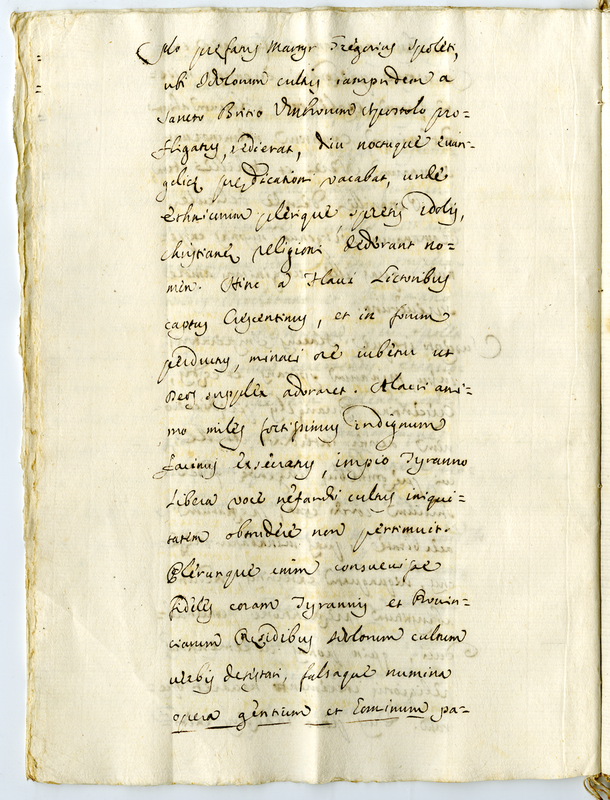 Quo prefatus Martyr Gregorius Spoleti,
ubi Idolorum cultus iampridem a
Sancto Britio Umbrorum Apostolo pro=
fligatus, redierat, diu noctuque evan-
gelicę prędicationi vacabat, unde
ethnicorum plerique, spretis Idolis,
christianę religioni dederant no=
men. Hinc a Flavi Lictoribus
captus Crescentinus, et in forum
perductus, minaci ore iubetur ut
Deos supplex adoraret. Alacri ani=
mo miles fortissimus indignum
facinus execratus, impio Tyranno
libera voce nefandi cultus iniqui=
tatem obtrudere non pertimuit.
Plerunque enim consuevisse
fideles coram Tyrannis et Provin=
ciarum Pręsidibus Idolorum cultum
verbis detestari, falsaque numina
opera gentium et hominum pa=